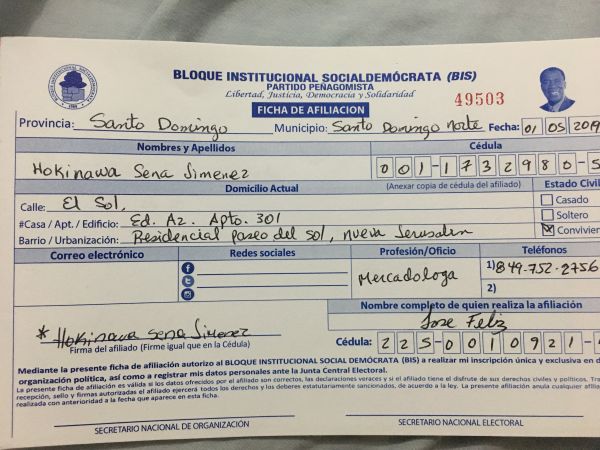 BLOQUE INSTITUCIONAL SOCIALDEMÓCRATA (BIS)
PARTIDO PEÑAGOMISTA
Libertad, Justicia, Democracia y Solidaridad
FICHA DE AFILIACION
49503
Provincia: Santo Domingo Municipio: Santo Domingo Norte Fecha: 01 05 2019
Nombres y Apellidos Cédula
Hokinawa Sena Jimenez 001-1732980-5
Domicilio Actual (Anexar copia de cédula del afiliado) Estado Civi
Calle: El Sol, Casado
#Casa / Apt. / Edificio: Ed. Az. Apto. 301 Soltero
Barrio / Urbanización: Residencial paseo del sol, nueva Jerusalen Convivien
Correo electrónico Redes sociales Profesión/Oficio Teléfonos
Mercadologa 1) 849-752-2756
2)
Nombre completo de quien realiza la afiliación
Jose Feliz
* Hokinawa Sena Jimenez
Firma del afiliado (Firme igual que en la Cédula) Cédula: 225-0010921-
Mediante la presente ficha de afiliación autorizo al BLOQUE INSTITUCIONAL SOCIAL DEMÓCRATA (BIS) a realizar mi inscripción única y exclusiva en d
organización política, así como a registrar mis datos personales ante la Junta Central Electoral.
La presente ficha de afiliación es válida si los datos ofrecidos por el afiliado son correctos, las declaraciones veraces y si el afiliado tiene el disfrute de sus derechos civiles y políticos. Tra
recepción, sello y firmas autorizadas el afiliado ejercerá todos los derechos y los deberes estatutariamente sancionados, de acuerdo a la ley. La presente afiliación anula cualquier afiliad
realizada con anterioridad a la fecha que aparece en esta ficha.
SECRETARIO NACIONAL DE ORGANIZACIÓN SECRETARIO NACIONAL ELECTORAL